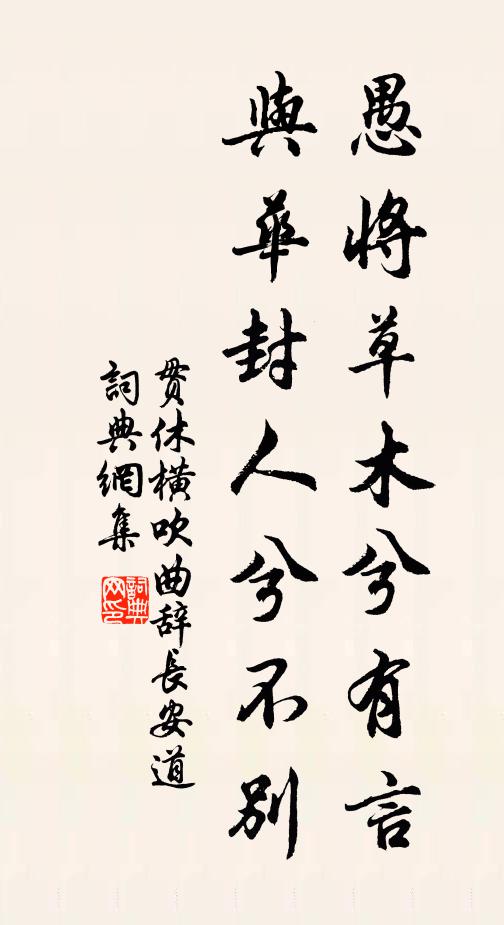 愚將草木兮有言
與華封人兮不別
貫休橫吹曲辞長安道
詞典網集
詞典
网印